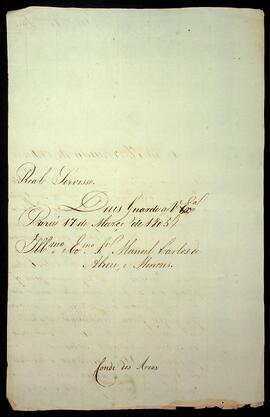 Real Servisso.
Deus Guarde a V. Exª
Pará 17 de Março de 1805
Illmo. Exmo. Sr. Manoel Carlos de
Abreu, e Menezes.
Conde dos Arcos